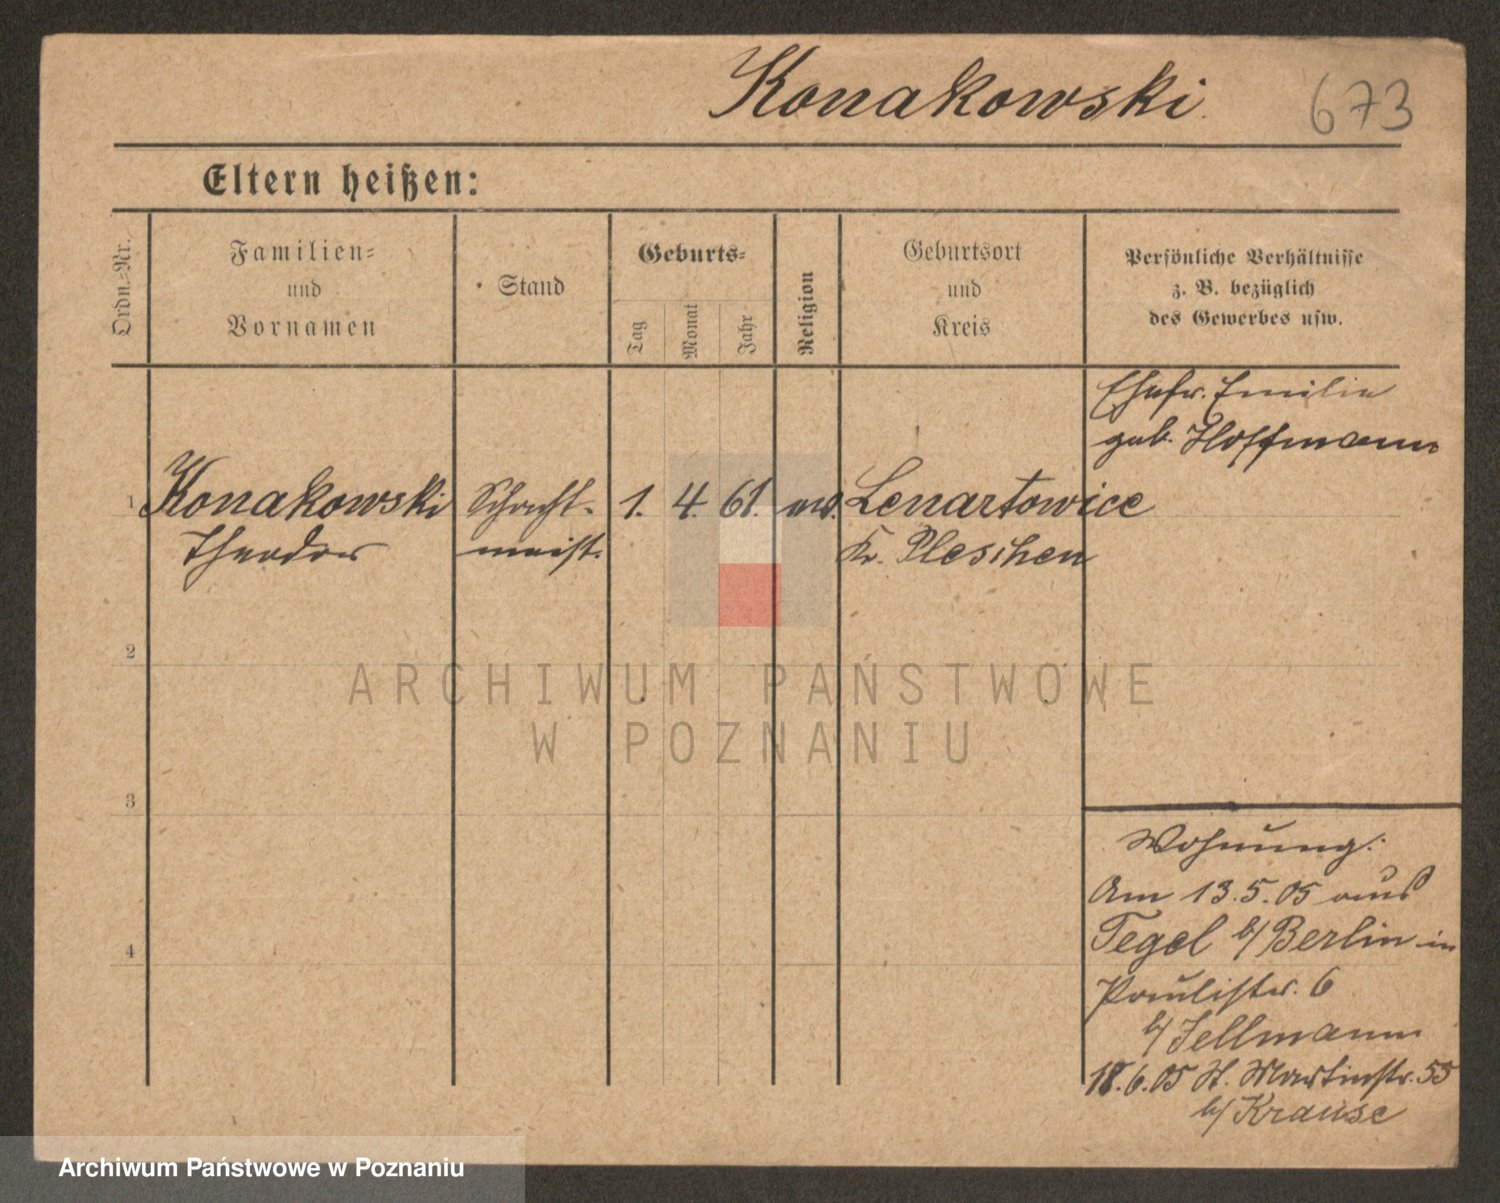 Konakowski 673
Eltern heißen:
Ordn.-Nr.
Familien-
und
Vornamen
Stand
Geburts-
Tag
Monat
Jahr
Religion
Geburtsort
und
Kreis
Persönliche Verhältnisse
z. B. bezüglich
des Gewerbes usw.
Ehefr. Emilie
geb. Hoffmann
1 Konakowski Schacht- 1. 4. 61. Lenartowice
Theodor meist. Kr. Pleschen
2
3
4
Wohnung:
Am 13.5.05 aus
Tegel b/ Berlin in
Paulistr. 6
b/ Sellmann
18.6.05 St. Martinstr. 55
b/ Krause
ARCHIWUM PAŃSTWOWE
W POZNANIU
Archiwum Państwowe w Poznaniu